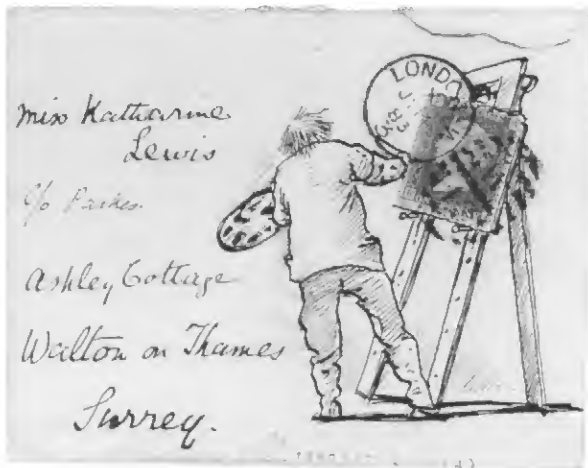 Miss Katharine
Lewis
c/o Parkes.
Ashley Cottage
Walton on Thames
Surrey.
LONDO